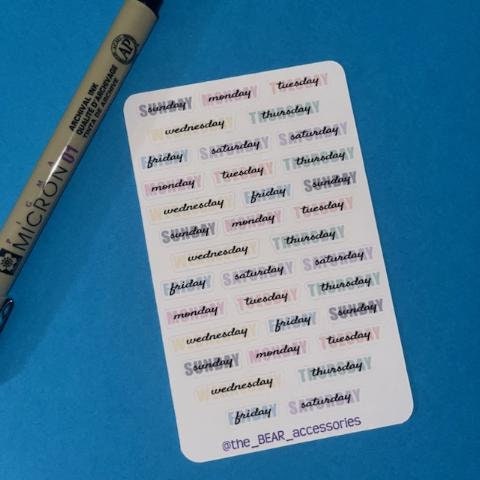 PIGMA
MICRON 01
ARCHIVAL INK
QUALITÉ D'ARCHIVAGE
TINTA DE ARCHIVO
AP
SUNDAY sunday MONDAY monday TUESDAY tuesday
WEDNESDAY wednesday THURSDAY thursday
FRIDAY friday SATURDAY saturday SATURDAY saturday
MONDAY monday TUESDAY tuesday THURSDAY thursday
WEDNESDAY wednesday FRIDAY friday SUNDAY sunday
SUNDAY sunday MONDAY monday TUESDAY tuesday
WEDNESDAY wednesday THURSDAY thursday
FRIDAY friday SATURDAY saturday SATURDAY saturday
MONDAY monday TUESDAY tuesday THURSDAY thursday
WEDNESDAY wednesday FRIDAY friday SUNDAY sunday
SUNDAY sunday MONDAY monday TUESDAY tuesday
WEDNESDAY wednesday THURSDAY thursday
FRIDAY friday SATURDAY saturday
@the_BEAR_accessories